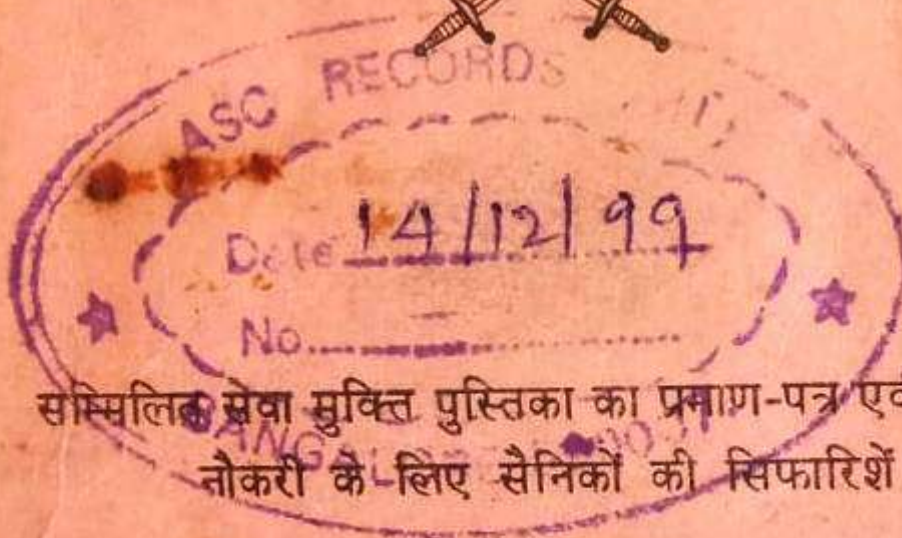 ASC RECORDS
Date 14/12/99
No.
सम्मिलित सेवा मुक्ति पुस्तिका का प्रमाण-पत्र एवं
नौकरी के लिए सैनिकों की सिफारिशें